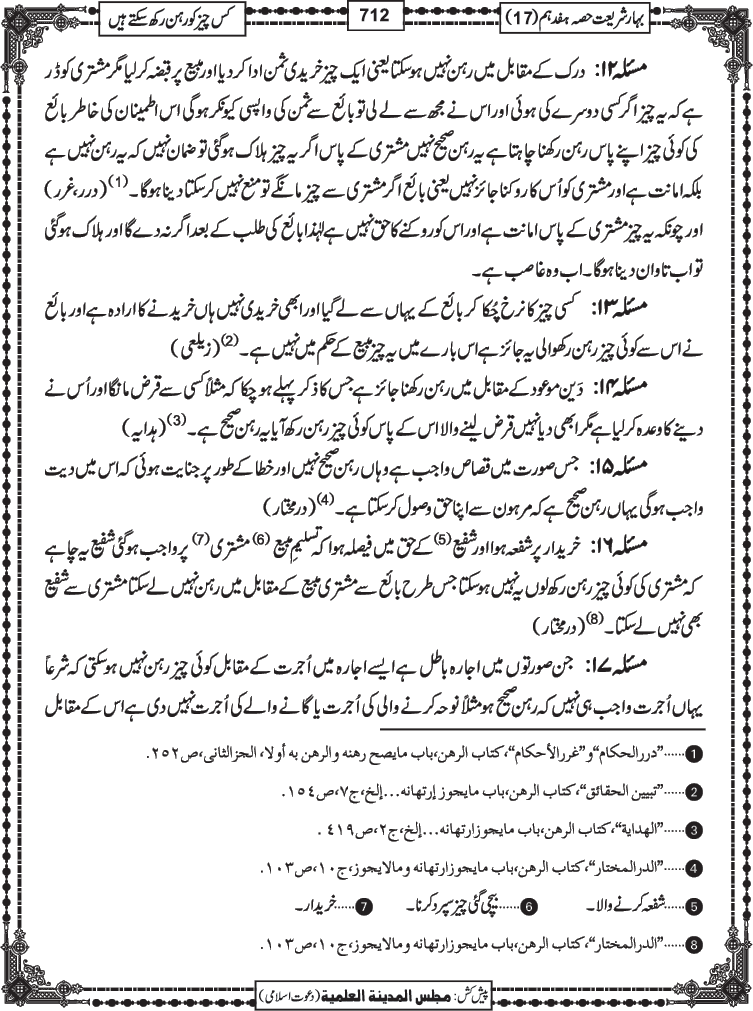 بہار شریعت حصہ ہفدہم (17)
712
کس چیز کو رہن رکھ سکتے ہیں
مسئلہ ۱۲: درک کے مقابل میں رہن نہیں ہوسکتا یعنی ایک چیز خریدی ثمن ادا کردیا اور مبیع پر قبضہ کرلیا مگر مشتری کو ڈر
ہے کہ یہ چیز اگر کسی دوسرے کی ہوئی اور اس نے مجھ سے لے لی تو بائع سے ثمن کی واپسی کیونکر ہوگی اس اطمینان کی خاطر بائع
کی کوئی چیز اپنے پاس رہن رکھنا چاہتا ہے یہ رہن صحیح نہیں مشتری کے پاس اگر یہ چیز ہلاک ہوگئی تو ضمان نہیں کہ یہ رہن نہیں ہے
بلکہ امانت ہے اور مشتری کو اُس کا روکنا جائز نہیں یعنی بائع اگر مشتری سے چیز مانگے تو منع نہیں کرسکتا دینا ہوگا۔(1) (درر، غرر)
اور چونکہ یہ چیز مشتری کے پاس امانت ہے اور اس کو روکنے کا حق نہیں ہے لہٰذا بائع کی طلب کے بعد اگر نہ دے گا اور ہلاک ہوگئی
تو اب تاوان دینا ہوگا۔ اب وہ غاصب ہے۔
مسئلہ ۱۳: کسی چیز کا نرخ چُکا کر بائع کے یہاں سے لے گیا اور ابھی خریدی نہیں ہاں خریدنے کا ارادہ ہے اور بائع
نے اس سے کوئی چیز رہن رکھوالی یہ جائز ہے اس بارے میں یہ چیز مبیع کے حکم میں نہیں ہے۔(2) (زیلعی)
مسئلہ ۱۴: دَین موعود کے مقابل میں رہن رکھنا جائز ہے جس کا ذکر پہلے ہوچکا کہ مثلاً کسی سے قرض مانگا اور اُس نے
دینے کا وعدہ کرلیا ہے مگر ابھی دیا نہیں قرض لینے والا اس کے پاس کوئی چیز رہن رکھ آیا یہ رہن صحیح ہے۔(3) (ہدایہ)
مسئلہ ۱۵: جس صورت میں قصاص واجب ہے وہاں رہن صحیح نہیں اور خطا کے طور پر جنایت ہوئی کہ اس میں دیت
واجب ہوگی یہاں رہن صحیح ہے کہ مرہون سے اپنا حق وصول کرسکتا ہے۔(4) (درمختار)
مسئلہ ۱۶: خریدار پر شفعہ ہوا اور شفیع(5) کے حق میں فیصلہ ہوا کہ تسلیمِ مبیع(6) مشتری(7) پر واجب ہوگئی شفیع یہ چاہے
کہ مشتری کی کوئی چیز رہن رکھ لوں یہ نہیں ہوسکتا جس طرح بائع سے مشتری مبیع کے مقابل میں رہن نہیں لے سکتا مشتری سے شفیع
بھی نہیں لے سکتا۔(8) (درمختار)
مسئلہ ۱۷: جن صورتوں میں اجارہ باطل ہے ایسے اجارہ میں اُجرت کے مقابل کوئی چیز رہن نہیں ہوسکتی کہ شرعاً
یہاں اُجرت واجب ہی نہیں کہ رہن صحیح ہو مثلاً نوحہ کرنے والی کی اُجرت یا گانے والے کی اُجرت نہیں دی ہے اس کے مقابل
1 ......"دررالحکام" و "غررالأحکام"، کتاب الرھن، باب مایصح رھنه والرھن به أولا، الجزالثانی، ص۲۵۲.
2 ......"تبیین الحقائق"، کتاب الرھن، باب مایجوز إرتھانه...إلخ، ج۷، ص۱۵٤.
3 ......"الھدایة"، کتاب الرھن، باب مایجوزارتھانه...إلخ، ج۲، ص٤۱۹.
4 ......"الدرالمختار"، کتاب الرھن، باب مایجوزارتھانه ومالایجوز، ج۱۰، ص۱۰۳.
5 ......شفعہ کرنے والا۔ 6 ......بیچی گئی چیز سپرد کرنا۔ 7 ......خریدار۔
8 ......"الدرالمختار"، کتاب الرھن، باب مایجوزارتھانه ومالایجوز، ج۱۰، ص۱۰۳.
پیش کش: مجلس المدینة العلمیة (دعوت اسلامی)